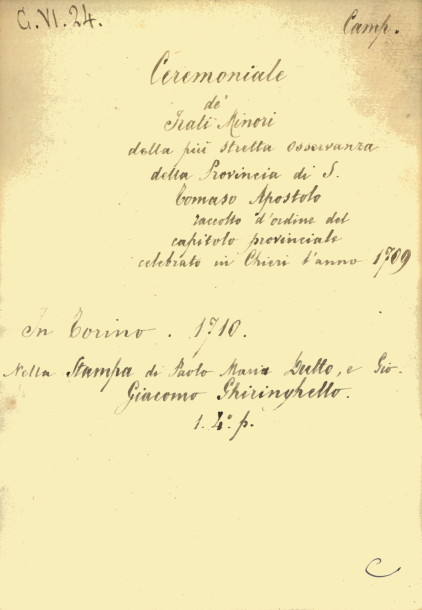 G. VI. 24.
Camp.
Ceremoniale
de'
Frati Minori
della più stretta osservanza
della Provincia di S.
Tomaso Apostolo
raccolto d'ordine del
capitolo provinciale
celebrato in Chieri l'anno 1709
In Torino. 1710.
Nella Stampa di Paolo Maria Dutto, e Gio.
Giacomo Ghiringhello.
1. 4°. p.
C